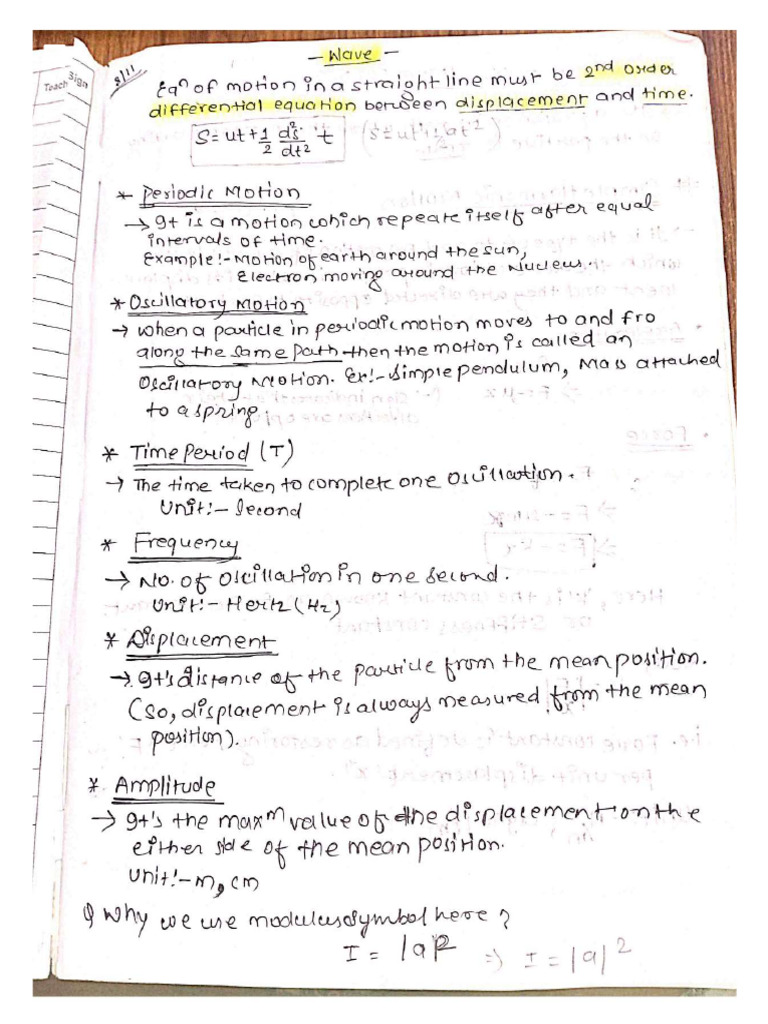 - Wave -
Sign
Teach
8/11
Eqⁿ of motion in a straight line must be 2nd order
differential equation between displacement and time.
S = ut + 1/2 d²s/dt² t (S = ut + 1/2 at²)
* Periodic Motion
→ It is a motion which repeate itself after equal
intervals of time.
Example:- Motion of earth around the sun,
Electron moving around the Nucleus.
* Oscillatory Motion
→ When a particle in periodic motion moves to and fro
along the same path then the motion is called an
Oscillatory Motion. Ex:- Simple pendulum, Mass attached
to a spring.
* Time Period (T)
→ The time taken to complete one oscillation.
Unit:- Second
* Frequency
→ No. of oscillation in one second.
Unit:- Hertz (Hz)
* Displacement
→ It's distance of the particle from the mean position.
(So, displacement is always measured from the mean
position).
* Amplitude
→ It's the maxᵐ value of the displacement on the
either side of the mean position.
Unit:- m, cm
Q Why we use modulus symbol here?
I = |a|² ⇒ I = |a|²